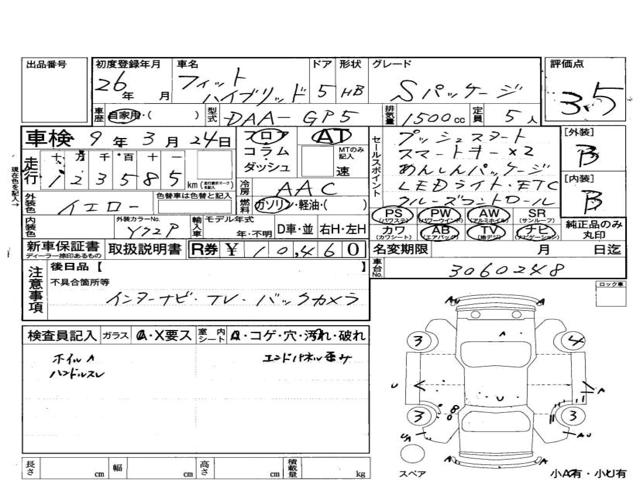 出品番号
初度登録年月 車名 ドア 形状 グレード 評価点
26年 月 フィット ハイブリッド 5 HB Sパッケージ 3.5
車歴 自家用・( ) 型式 DAA-GP5 排気量 1500cc 定員 5人
車検 9年3月24日 フロア AT
コラム MTのみ記入
ダッシュ 速
走行 十万 万 千 百 十 一
123585 km
冷房 AAC
外装色 イエロー 色替車は色替色 燃料 ガソリン・軽油・( )
内装色 外装カラーNo. Y72P 輸入車 モデル年式 年・不明 D車・並 右H・左H
セールスポイント
プッシュスタート
スマートキー×2
あんしんパッケージ
LEDライト・ETC
クルーズコントロール
[外装] B
[内装] B
PS (パワステ) PW (パワーウインド) AW (アルミホイル) SR (サンルーフ)
カワ (カワシート) AB (エアバック) TV (地デジ) ナビ (ナビゲーション)
純正品のみ丸印
新車保証書 ディーラー捺印あるもの 取扱説明書 R券 ¥10,460
名変期限 月 日迄
車台No. 3060248
注意事項
後日品【 】
不具合箇所等
インターナビ・TV・バックカメラ
ロック車
検査員記入 ガラス A・X要ス 室内シート A・コゲ・穴・汚れ・破れ
ホイルA エンドパネル歪み
ハンドルスレ
長さ cm 幅 cm 高さ cm 積載量 kg
A
3 4
U A
3 3
UA A AU
スペア
小A有・小U有
現在色を記入